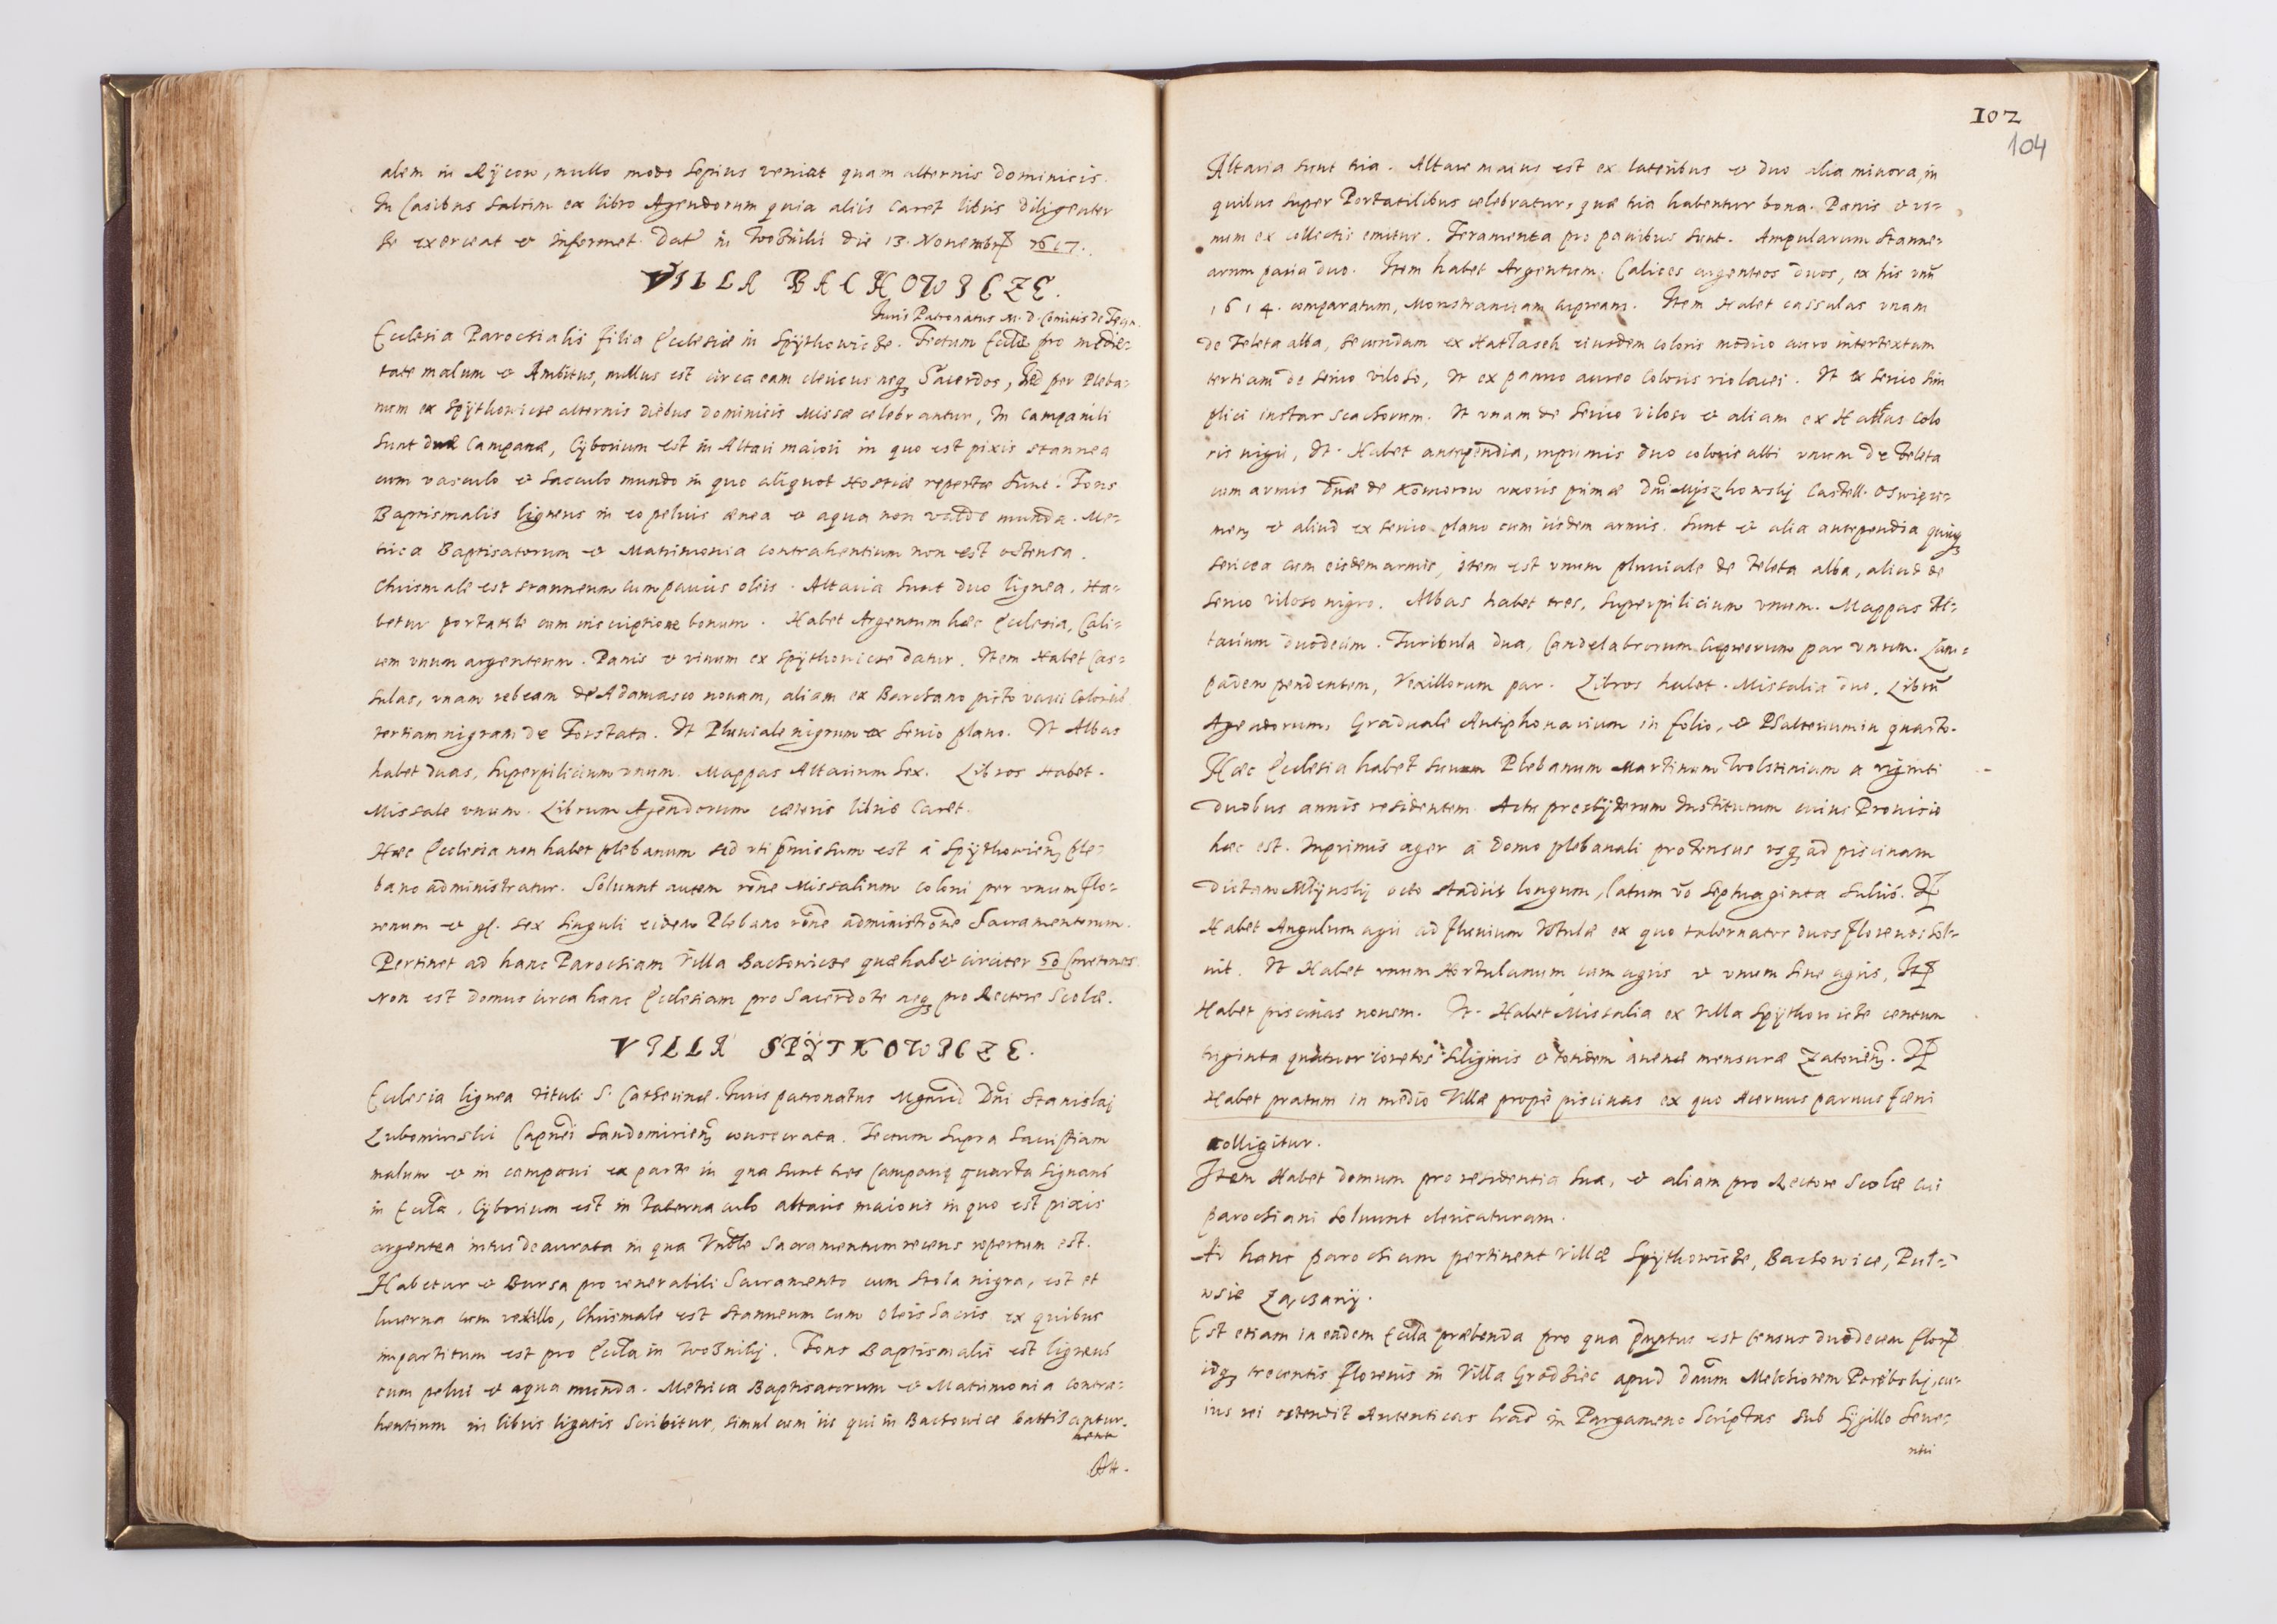 alem in Ryczow, nullo modo sepius veniat quam alternis dominicis.
In Casibus saltim ex libro Agendorum quia aliis caret libris diligenter
se exerceat et informet. Dat in Woznihi die 13. Novembr 1617.
VILLA BACHOWICZE.
Iuris Patronatus M. D. Comitis de Tęcz.
Ecclesia Parochialis filia Ecclesiæ in Spythowicze. Tectum Eccliæ pro medie-
tate malum et Ambitus, nullus est circa eam clericus neq Sacerdos, sed per Pleba-
num ex Spythowicze alternis diebus dominicis Missæ celebrantur, In Campanili
sunt duæ Campanæ, Cyborium est in Altari maiori in quo est pixis stannea
cum vasculo et sacculo mundo in quo aliquot Hostiæ repertæ sunt. Fons
Baptismalis ligneus in eo peluis ænea et aqua non valde munda. Me-
trica Baptisatorum et Matrimonia contrahentium non est ostensa.
Chrismale est stanneum cum parius oleis. Altaria sunt duo lignea. Ha-
betur portatile cum inscriptione bonum. Habet Argentum hæc Ecclesia, Cali-
cem vnum argenteum. Panis et vinum ex Spythowicze datur. Item Habet Cas-
sulas, vnam rubeam de Adamasco nouam, aliam ex Barchano picto varii coloris
tertiam nigram de Forstata. It Pluuiale nigrum ex serico plano. It Albas
habet duas, superpilicium vnum. Mappas Altarium sex. Libros Habet.
Missale vnum. Librum Agendorum cæteris libris caret.
Hæc Ecclesia non habet plebanum sed vti pmissum est à Spythowien ple-
bano administratur. Soluunt autem rone Missalium coloni per vnum flo-
renum et gl. sex singuli eidem Plebano rone administrone Sacramentorum.
Pertinet ad hanc Parochiam Villa Bachowicze quæ habet circiter 50 Cmetones.
Non est domus circa hanc Ecclesiam pro Sacerdote neq pro Rectore Scolæ.
VILLA SPYTKOWICZE.
Ecclesia lignea tituli S. Catherinæ. Iuris patronatus Mgnici Dni Stanislai
Lubomirski Capnei Sandomirien consecrata. Tectum supra sacristiam
malum et in campani ex parte in qua sunt tres Campanę quarta signans
in Eccla. Cyborium est in tabernaculo altaris maioris in quo est pixis
argentea intus deaurata in qua Vnble Sacramentum recens repertum est.
Habetur et Bursa pro venerabili Sacramento cum stola nigra, est et
lucerna cum vexillo, Chrismale est stanneum cum oleis sacris ex quibus
impartitum est pro Eccla in Woznihy. Fons Baptismalis est ligneus
cum pelui et aqua munda. Metrica Baptisatorum et Matrimonia contra-
hentium in libris ligatis scribitur, simul cum iis qui in Bachowice battisantur.
Alt.
102
104
Altaria sunt tria. Altare maius est ex lateribus et duo alia minora, in
quibus super Portatilibus celebratur, quæ tria habentur bona. Panis et vi-
num ex collectis emitur. Feramenta pro panibus sunt. Ampularum stanne-
arum paria duo. Item habet Argentum. Calices argenteos duos, ex his vnu
1614. comparatum, Monstranciam cupream. Item Habet cassulas vnam
de Teleta alba, secundam ex Hatlasch eiusdem coloris medio auro intertextam
tertiam de serico viloso, It ex panno aureo coloris violacei. It ex serico sim
plici instar scachorum. It vnam de serico viloso et aliam ex Hatlas colo
ris nigri, It. Habet antependia, inprimis duo coloris albi vnum de Teleta
cum armis Dnæ de Komorow vxoris primæ Dni Myszkowsky Castell. Oswięci-
men et aliud ex serico plano cum iisdem armis. sunt et alia antependia quinq
sericea cum eisdem armis, item est vnum pluuiale de Teleta alba, aliud de
serico viloso nigro. Albas habet tres, superpilicium vnum. Mappas Al-
tarium duodecim. Turibula dua, Candelabrorum cupreorum par vnum. Lam-
padem pendentem, Vexillorum par. Libros habet. Missalia duo, Libru
Agendorum, Graduale Antiphonarium in folio, et Psalterium in quarto.
Hæc Ecclesia habet suum Plebanum Martinum Wolstinium a viginti
duobus annis residentem. Actu presbyterum Institutum cuius Prouisio
hæc est. Inprimis ager à domo plebanali protensus vsq ad piscinam
dictam Mlynsky octo stadiis longum, latum vo septuaginta sulcis. It
Habet Angulum agri ad fluuium Vstulæ ex quo tabernator duos florenos sol-
uit. It Habet vnum Hortulanum cum agris et vnum sine agris, It
Habet piscinas nouem. It. Habet Missalia ex Villa Spythowicze centum
triginta quatuor coretos siliginis et totidem auenæ mensuræ Zatorien. It
Habet pratum in medio Villæ propè piscinas ex quo Aceruus paruus fæni
colligitur.
Item Habet domum pro residentia sua, et aliam pro Rectore Scolæ cui
parochiani soluunt clericaturam.
Ad hanc parochiam pertinent Villæ Spythowicze, Bachowice, Pul-
wsie Zachary.
Est etiam in eadem Eccla præbenda pro qua emptus est census duodecem flor
idq trecentis florenis in Villa Grodziec apud dnum Melchiorem Porębsky, cu-
ius rei ostendit Autenticas lras in Pargameno scriptas sub Sygillo seue-
rini